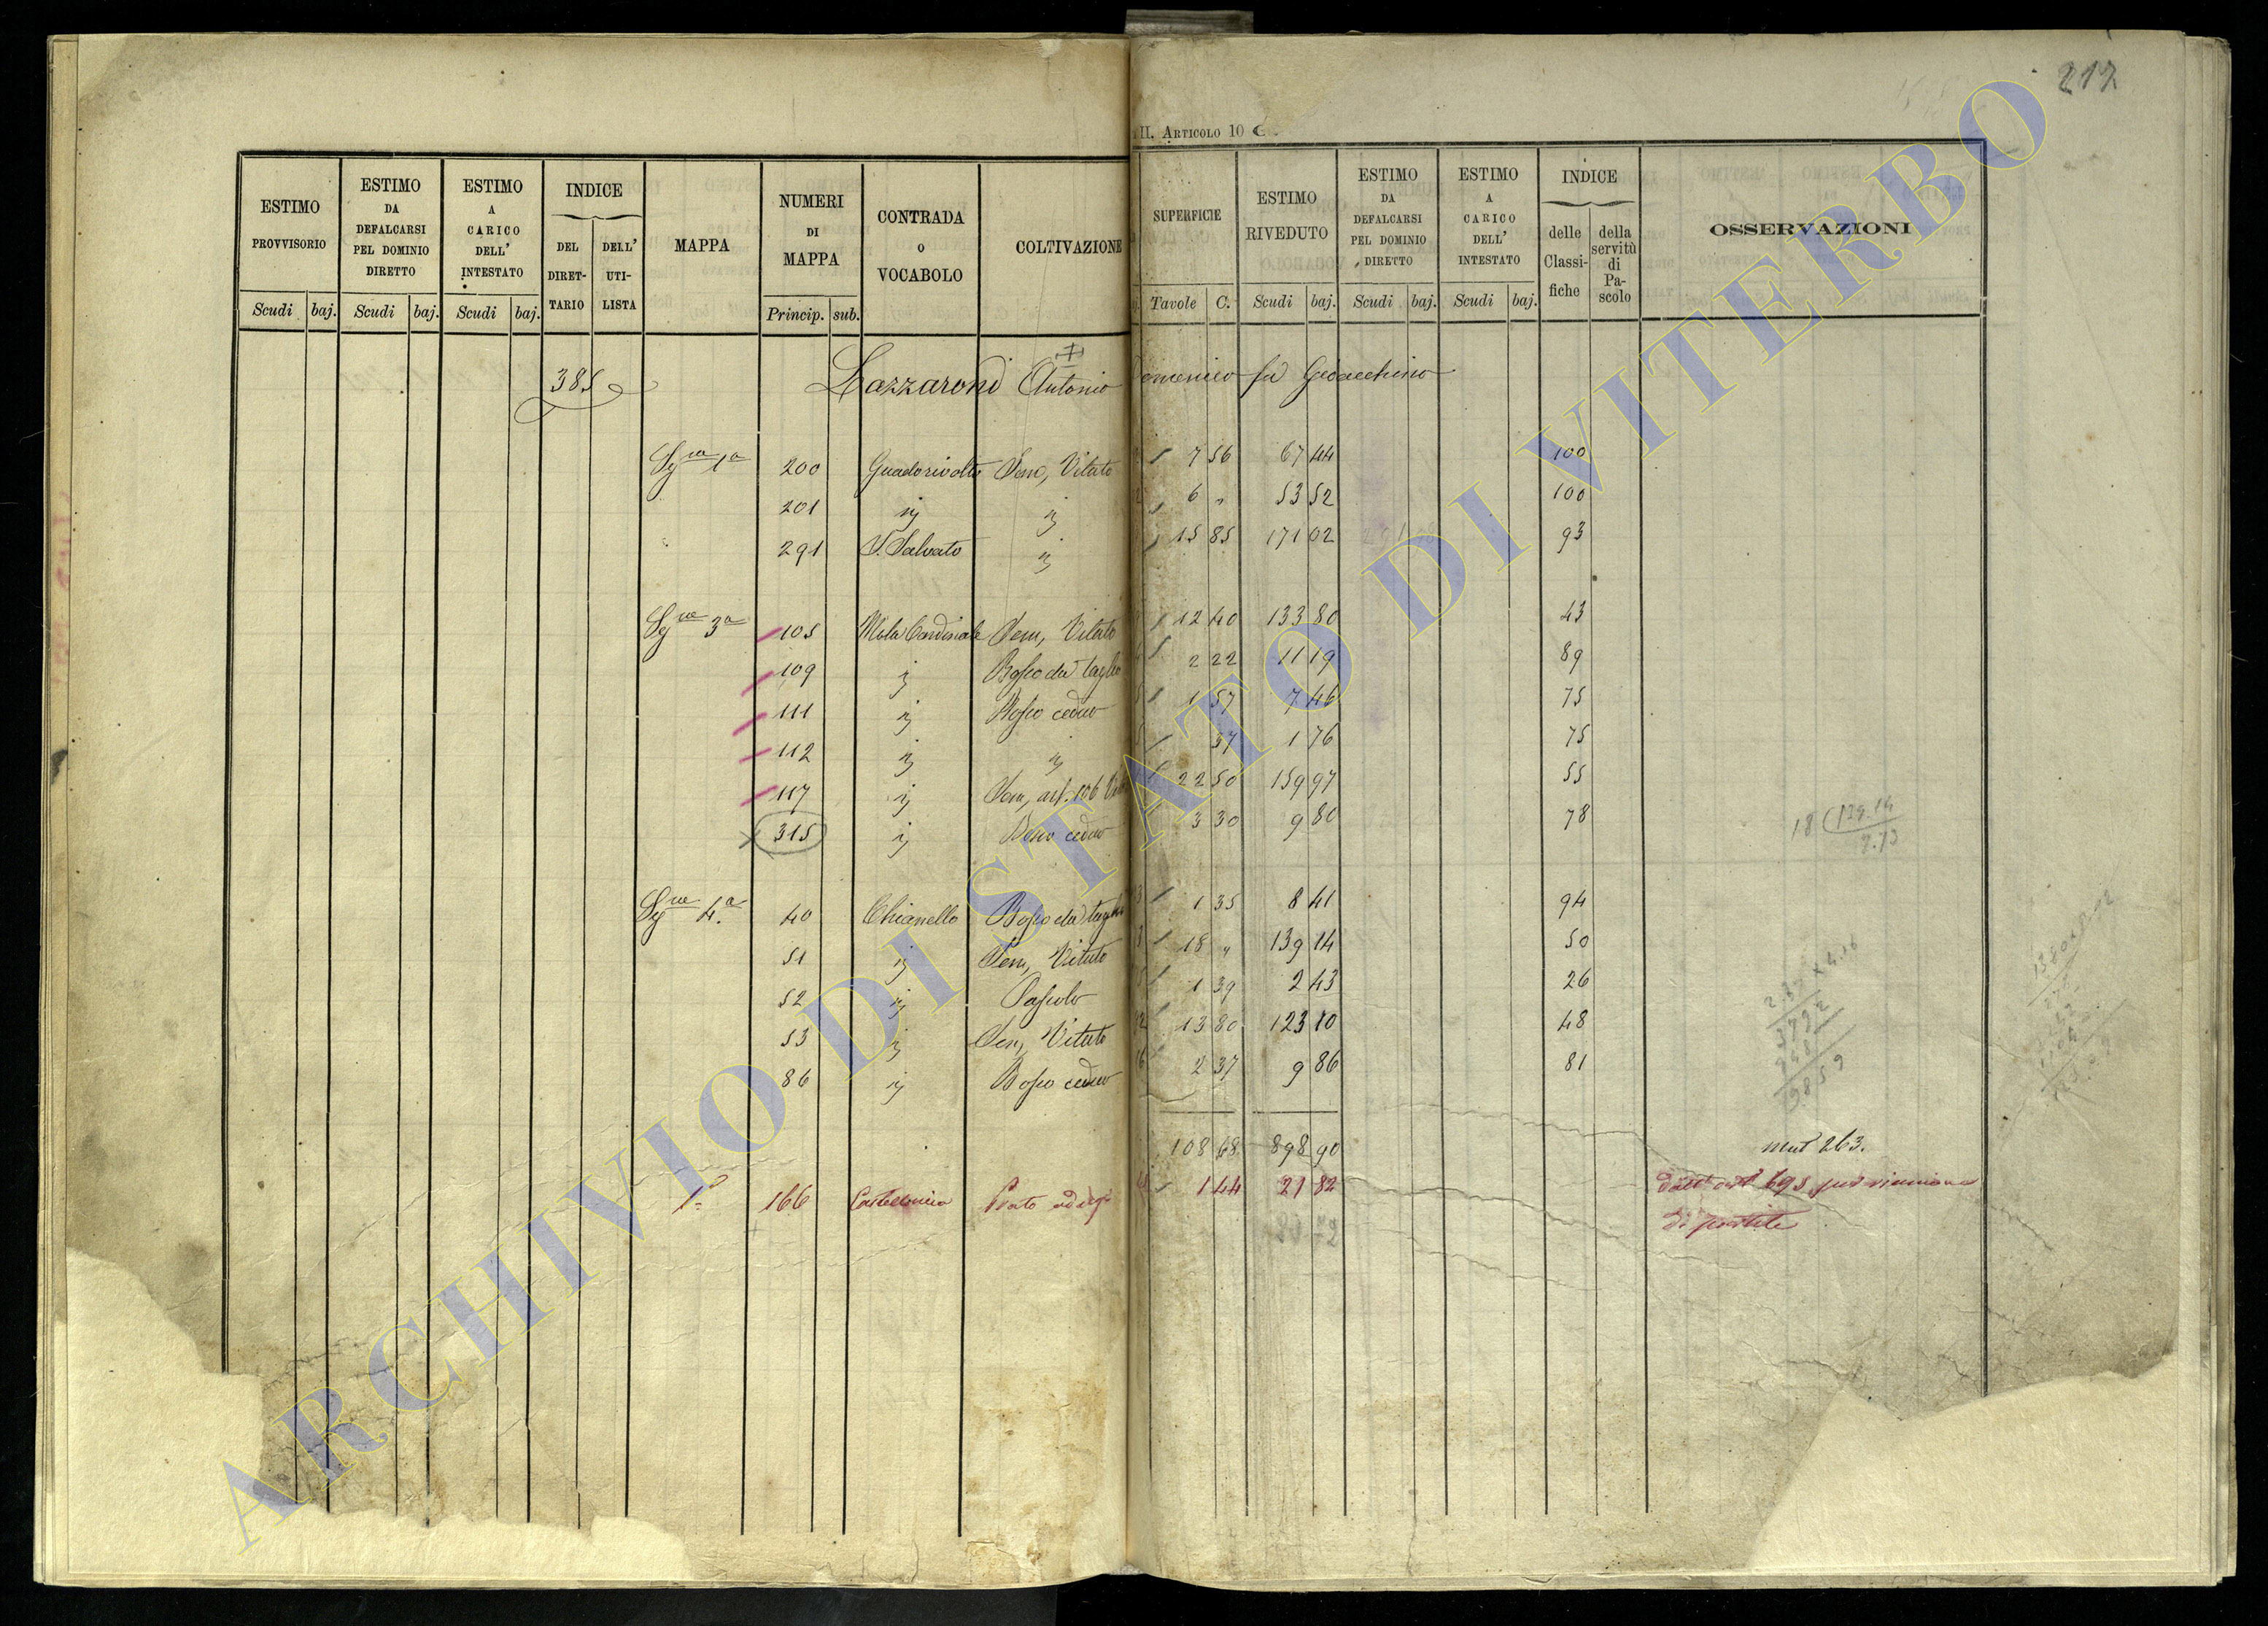 217
II. ARTICOLO 10
ESTIMO PROVVISORIO Scudi baj.
ESTIMO DA DEFALCARSI PEL DOMINIO DIRETTO Scudi baj.
ESTIMO A CARICO DELL' INTESTATO Scudi baj.
INDICE DEL DIRETTARIO DELL' UTILISTA
MAPPA
NUMERI DI MAPPA Princip. sub.
CONTRADA O VOCABOLO
COLTIVAZIONE
SUPERFICIE Tavole C.
ESTIMO RIVEDUTO Scudi baj.
ESTIMO DA DEFALCARSI PEL DOMINIO DIRETTO Scudi baj.
ESTIMO A CARICO DELL' INTESTATO Scudi baj.
INDICE delle Classifiche della servitù di Pascolo
OSSERVAZIONI
385 Lazzaroni Antonio Domenico fu Gioacchino
1a 200 Guadorivolto Sem, Vitato 7 56 67 44 100
201 6 " 53 52 100
291 S. Salvato 15 85 171 02 93
3a 105 Mola Cardinale Sem, Vitato 12 40 133 80 43
109 Bosco da taglio 2 22 11 19 89
111 Bosco ceduo 1 57 7 46 75
112 37 1 76 75
117 Sem, 22 50 159 97 55
315 Bosco ceduo 3 30 9 80 78
18 129.14
4a 40 Chianello Bosco da taglio 1 35 8 41 94
51 Sem, Vitato 18 " 139 14 50
52 Pascolo 1 39 2 43 26
53 Sem, Vitato 13 80 123 10 48
86 Bosco ceduo 2 37 9 86 81
108 68 898 90 mut 263.
1a 166 Prato 1 44 21 82 dall' art 695 per riunione
di partite
ARCHIVIO DI STATO DI VITERBO